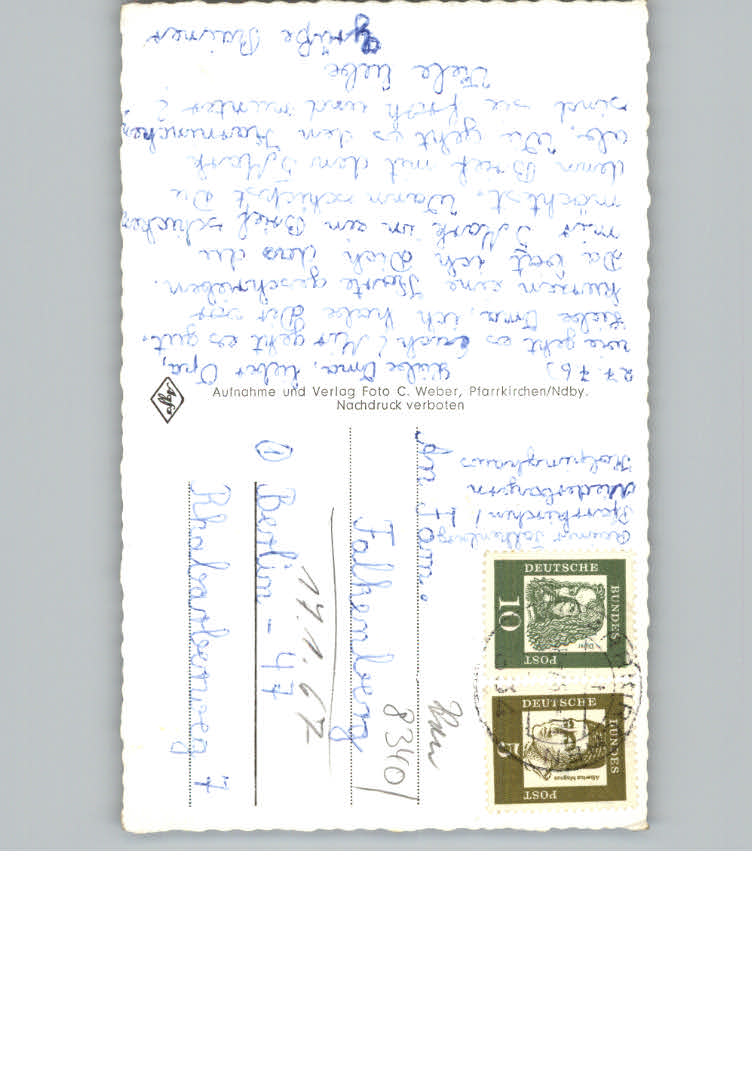 27.7.63 Liebe Oma, lieber Opa,
wie geht es Euch? Mir geht es gut.
Liebe Oma, ich habe Dir vor
kurzem eine Karte geschrieben.
Da bat ich Dich, das du
mir 5 Mark im een Brief schicken
möchtst. Wann schickst Du
denn Brief mit dem 5 Mark
ab. Wie geht es dem Karninchen,
sind sie froh und munter?
Viele liebe
Grüße Rainer
Aufnahme und Verlag Foto C. Weber, Pfarrkirchen/Ndby.
Nachdruck verboten
Agfa
Falkenberg
Pfarrkirchen /
Niederbayern
Kolpinghaus
8340/
Falkenberg
17.1.67
① Berlin - 47
Rhabarberweg 7
DEUTSCHE
BUNDES
POST
10
Dürer
DEUTSCHE
BUNDES
POST
5
Albertus Magnus